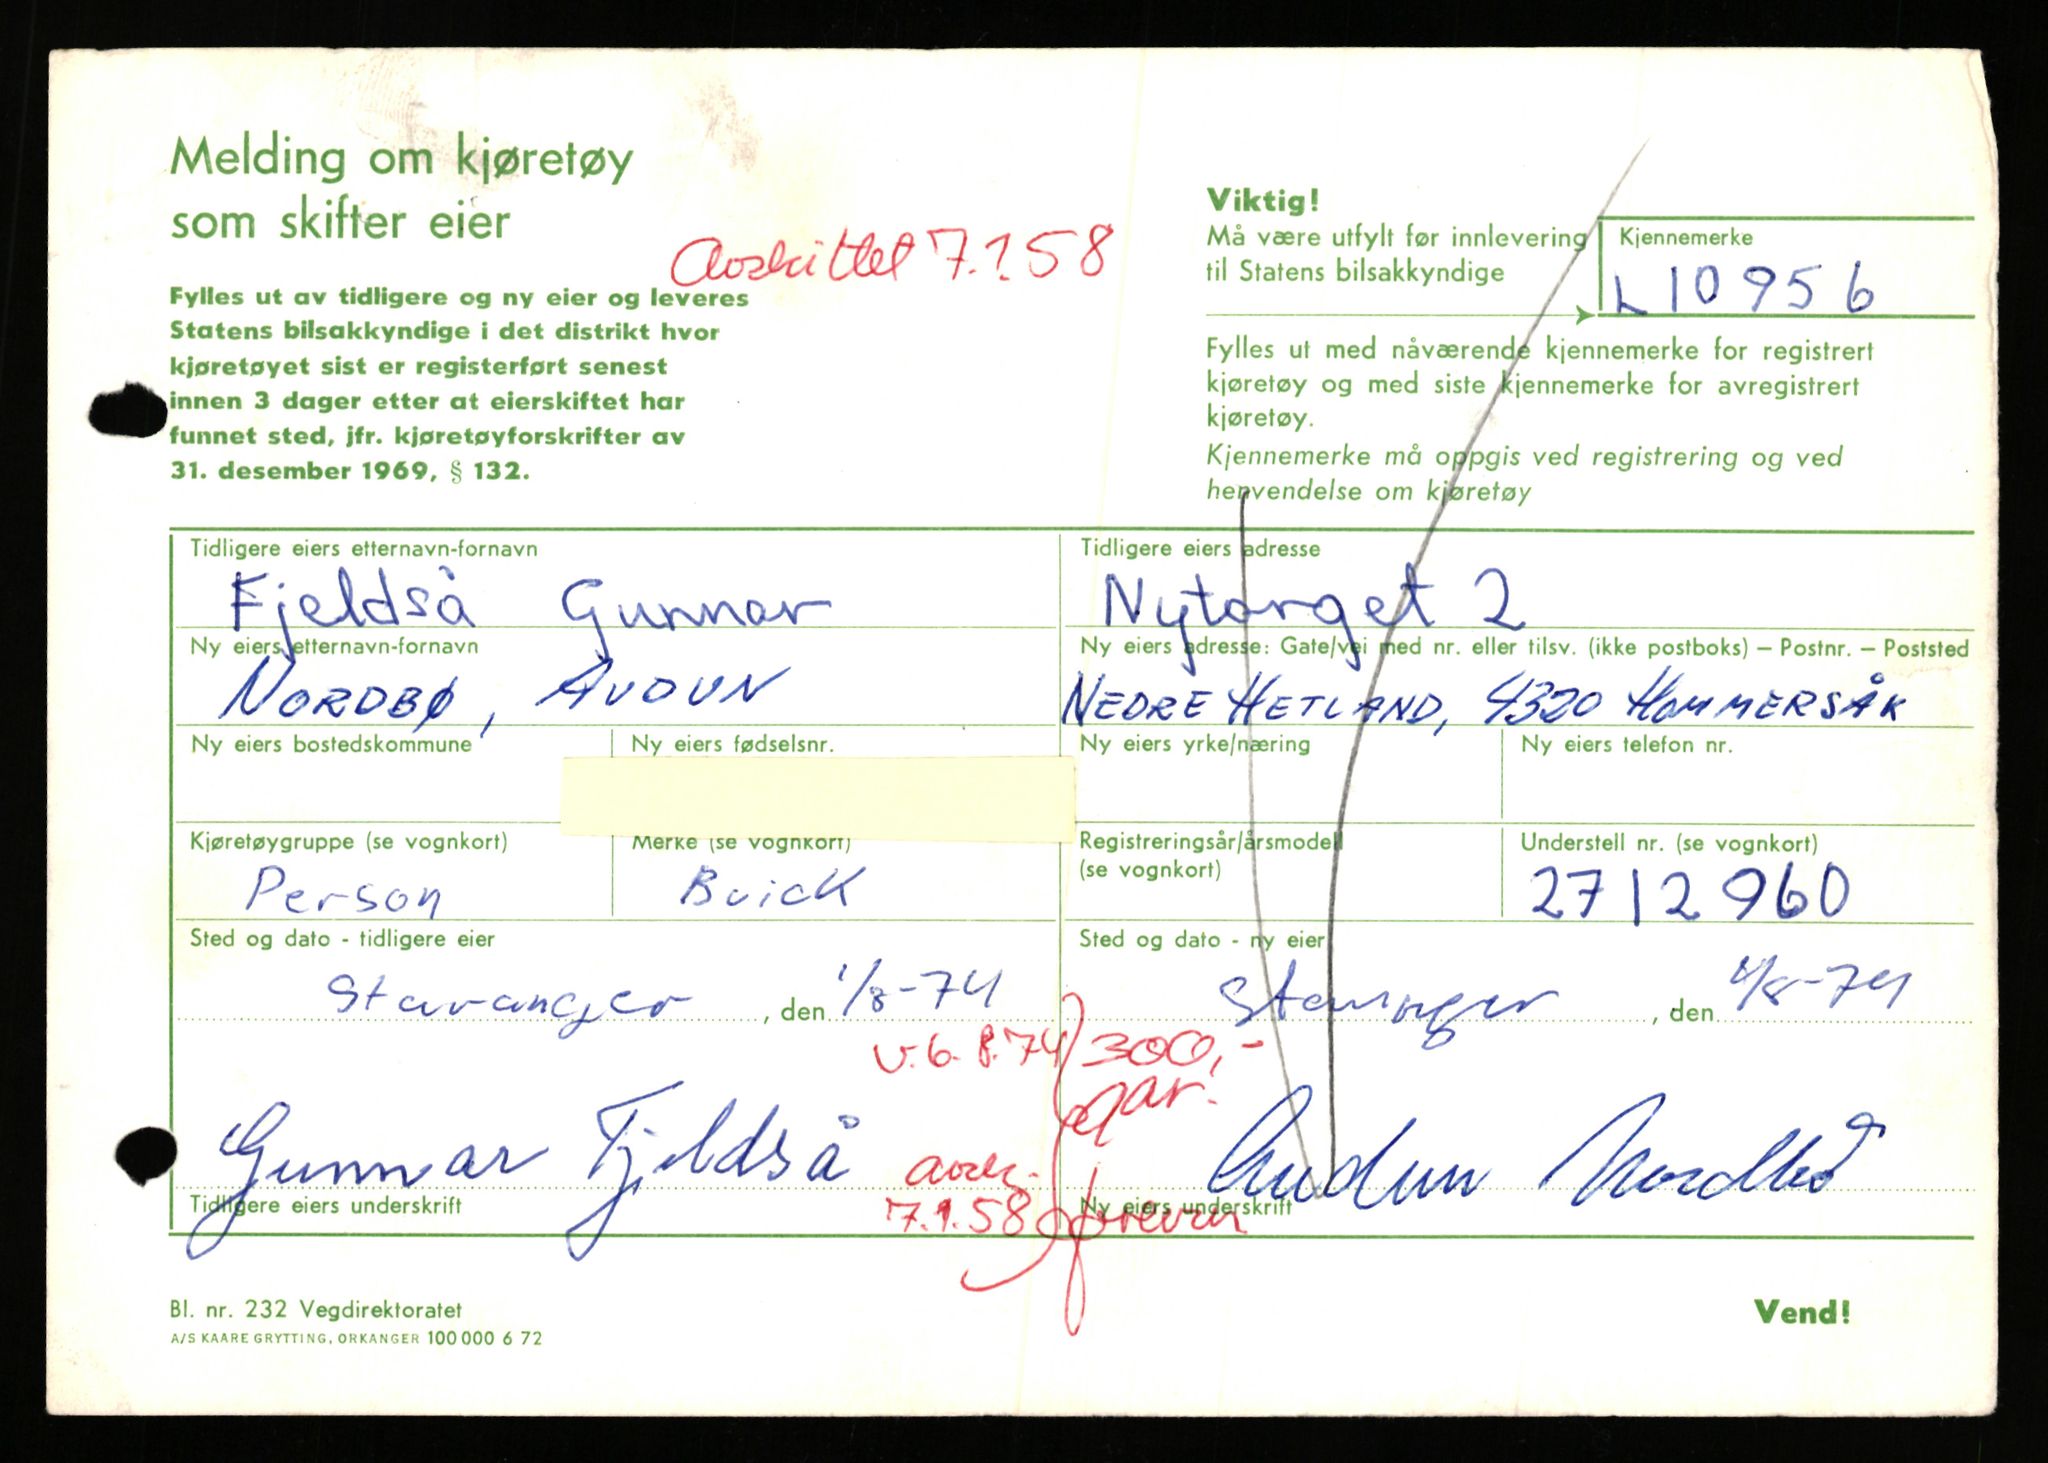 Melding om kjøretøy
som skifter eier
Avskiltet 7.1.58
Fylles ut av tidligere og ny eier og leveres
Statens bilsakkyndige i det distrikt hvor
kjøretøyet sist er registerført senest
innen 3 dager etter at eierskiftet har
funnet sted, jfr. kjøretøyforskrifter av
31. desember 1969, § 132.
Viktig!
Må være utfylt før innlevering
til Statens bilsakkyndige
Kjennemerke
L 10956
Fylles ut med nåværende kjennemerke for registrert
kjøretøy og med siste kjennemerke for avregistrert
kjøretøy.
Kjennemerke må oppgis ved registrering og ved
henvendelse om kjøretøy
Tidligere eiers etternavn-fornavn
Fjeldså Gunnar
Tidligere eiers adresse
Nytorget 2
Ny eiers etternavn-fornavn
NORDBØ, AUDUN
Ny eiers adresse: Gate/vei med nr. eller tilsv. (ikke postboks) – Postnr. – Poststed
NEDRE HETLAND, 4320 HOMMERSÅK
Ny eiers bostedskommune
Ny eiers fødselsnr.
Ny eiers yrke/næring
Ny eiers telefon nr.
Kjøretøygruppe (se vognkort)
Person
Merke (se vognkort)
Buick
Registreringsår/årsmodell
(se vognkort)
Understell nr. (se vognkort)
2712960
Sted og dato - tidligere eier
Stavanger, den 1/8-74
Sted og dato - ny eier
Stavanger, den 1/8-74
v. 6.8.74
300,-
gar.
Gunnar Fjeldså
Tidligere eiers underskrift
avsk.
7.1.58
Audun Nordbø
Ny eiers underskrift
Bl. nr. 232 Vegdirektoratet
A/S KAARE GRYTTING, ORKANGER 100 000 6 72
Vend!